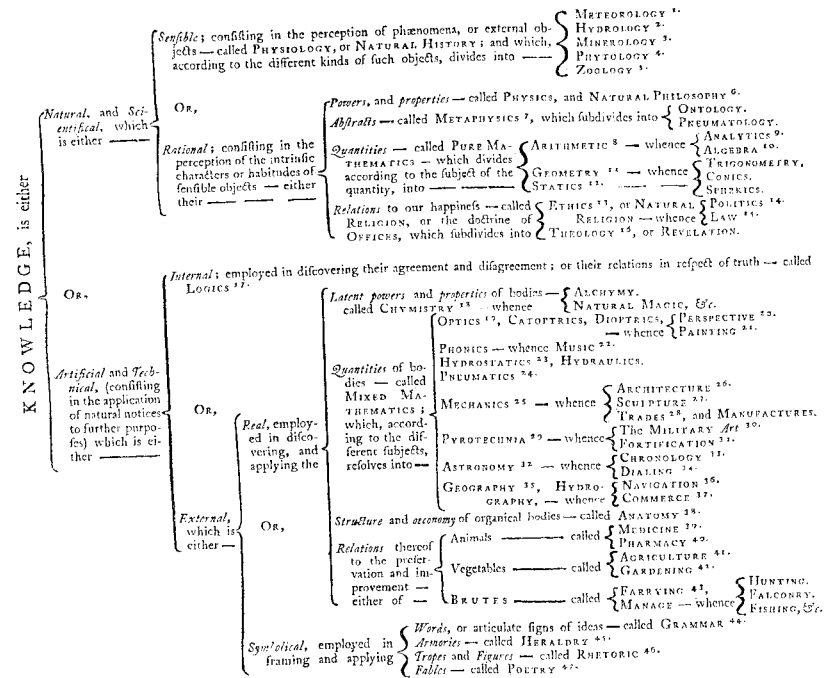 KNOWLEDGE, is either
Natural, and Sci-
entifical, which
is either
Senſible; conſiſting in the perception of phænomena, or external ob-
jects — called PHYSIOLOGY, or NATURAL HISTORY; and which,
according to the different kinds of ſuch objects, divides into ——
METEOROLOGY 1.
HYDROLOGY 2.
MINEROLOGY 3.
PHYTOLOGY 4.
ZOOLOGY 5.
OR,
Rational; conſiſting in the
perception of the intrinſic
characters or habitudes of
ſenſible objects — either
their ——
Powers, and properties — called PHYSICS, and NATURAL PHILOSOPHY 6.
Abſtracts — called METAPHYSICS 7, which ſubdivides into
ONTOLOGY.
PNEUMATOLOGY.
Quantities — called PURE MA-
THEMATICS — which divides
according to the ſubject of the
quantity, into ——
ARITHMETIC 8 — whence
ANALYTICS 9.
ALGEBRA 10.
GEOMETRY 11 — whence
TRIGONOMETRY,
CONICS.
SPHERICS.
STATICS 12.
Relations to our happineſs — called
RELIGION, or the doctrine of
OFFICES, which ſubdivides into
ETHICS 13, or NATURAL
RELIGION — whence
POLITICS 14.
LAW 15.
THEOLOGY 16, or REVELATION.
OR,
Artificial and Tech-
nical, (conſiſting
in the application
of natural notices
to further purpo-
ſes) which is ei-
ther ——
Internal; employed in diſcovering their agreement and diſagreement; or their relations in reſpect of truth — called
LOGICS 17.
OR,
External,
which is
either —
Real, employ-
ed in diſco-
vering, and
applying the
Latent powers and properties of bodies —
called CHYMISTRY 18 — whence
ALCHYMY.
NATURAL MAGIC, &c.
Quantities of bo-
dies — called
MIXED MA-
THEMATICS;
which, accord-
ing to the dif-
ferent ſubjects,
reſolves into —
OPTICS 19, CATOPTRICS, DIOPTRICS,
— whence
PERSPECTIVE 20.
PAINTING 21.
PHONICS — whence MUSIC 22.
HYDROSTATICS 23, HYDRAULICS.
PNEUMATICS 24.
MECHANICS 25 — whence
ARCHITECTURE 26.
SCULPTURE 27.
TRADES 28, and MANUFACTURES.
PYROTECHNIA 29 — whence
The MILITARY Art 30.
FORTIFICATION 31.
ASTRONOMY 32 — whence
CHRONOLOGY 33.
DIALING 34.
GEOGRAPHY 35, HYDRO-
GRAPHY, — whence
NAVIGATION 36.
COMMERCE 37.
Structure and oeconomy of organical bodies — called ANATOMY 38.
Relations thereof
to the preſer-
vation and im-
provement —
either of —
Animals —— called
MEDICINE 39.
PHARMACY 40.
Vegetables —— called
AGRICULTURE 41.
GARDENING 42.
BRUTES —— called
FARRYING 43,
MANAGE — whence
HUNTING.
FALCONRY.
FISHING, &c.
OR,
Symbolical, employed in
framing and applying
Words, or articulate ſigns of ideas — called GRAMMAR 44.
Armories — called HERALDRY 45.
Tropes and Figures — called RHETORIC 46.
Fables — called POETRY 47.